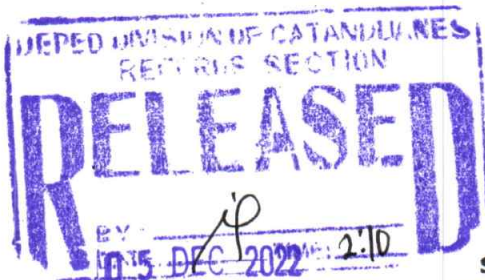 DEPED DIVISION OF CATANDUANES
RECORDS SECTION
RELEASED
BY
05 DEC 2022 2:10